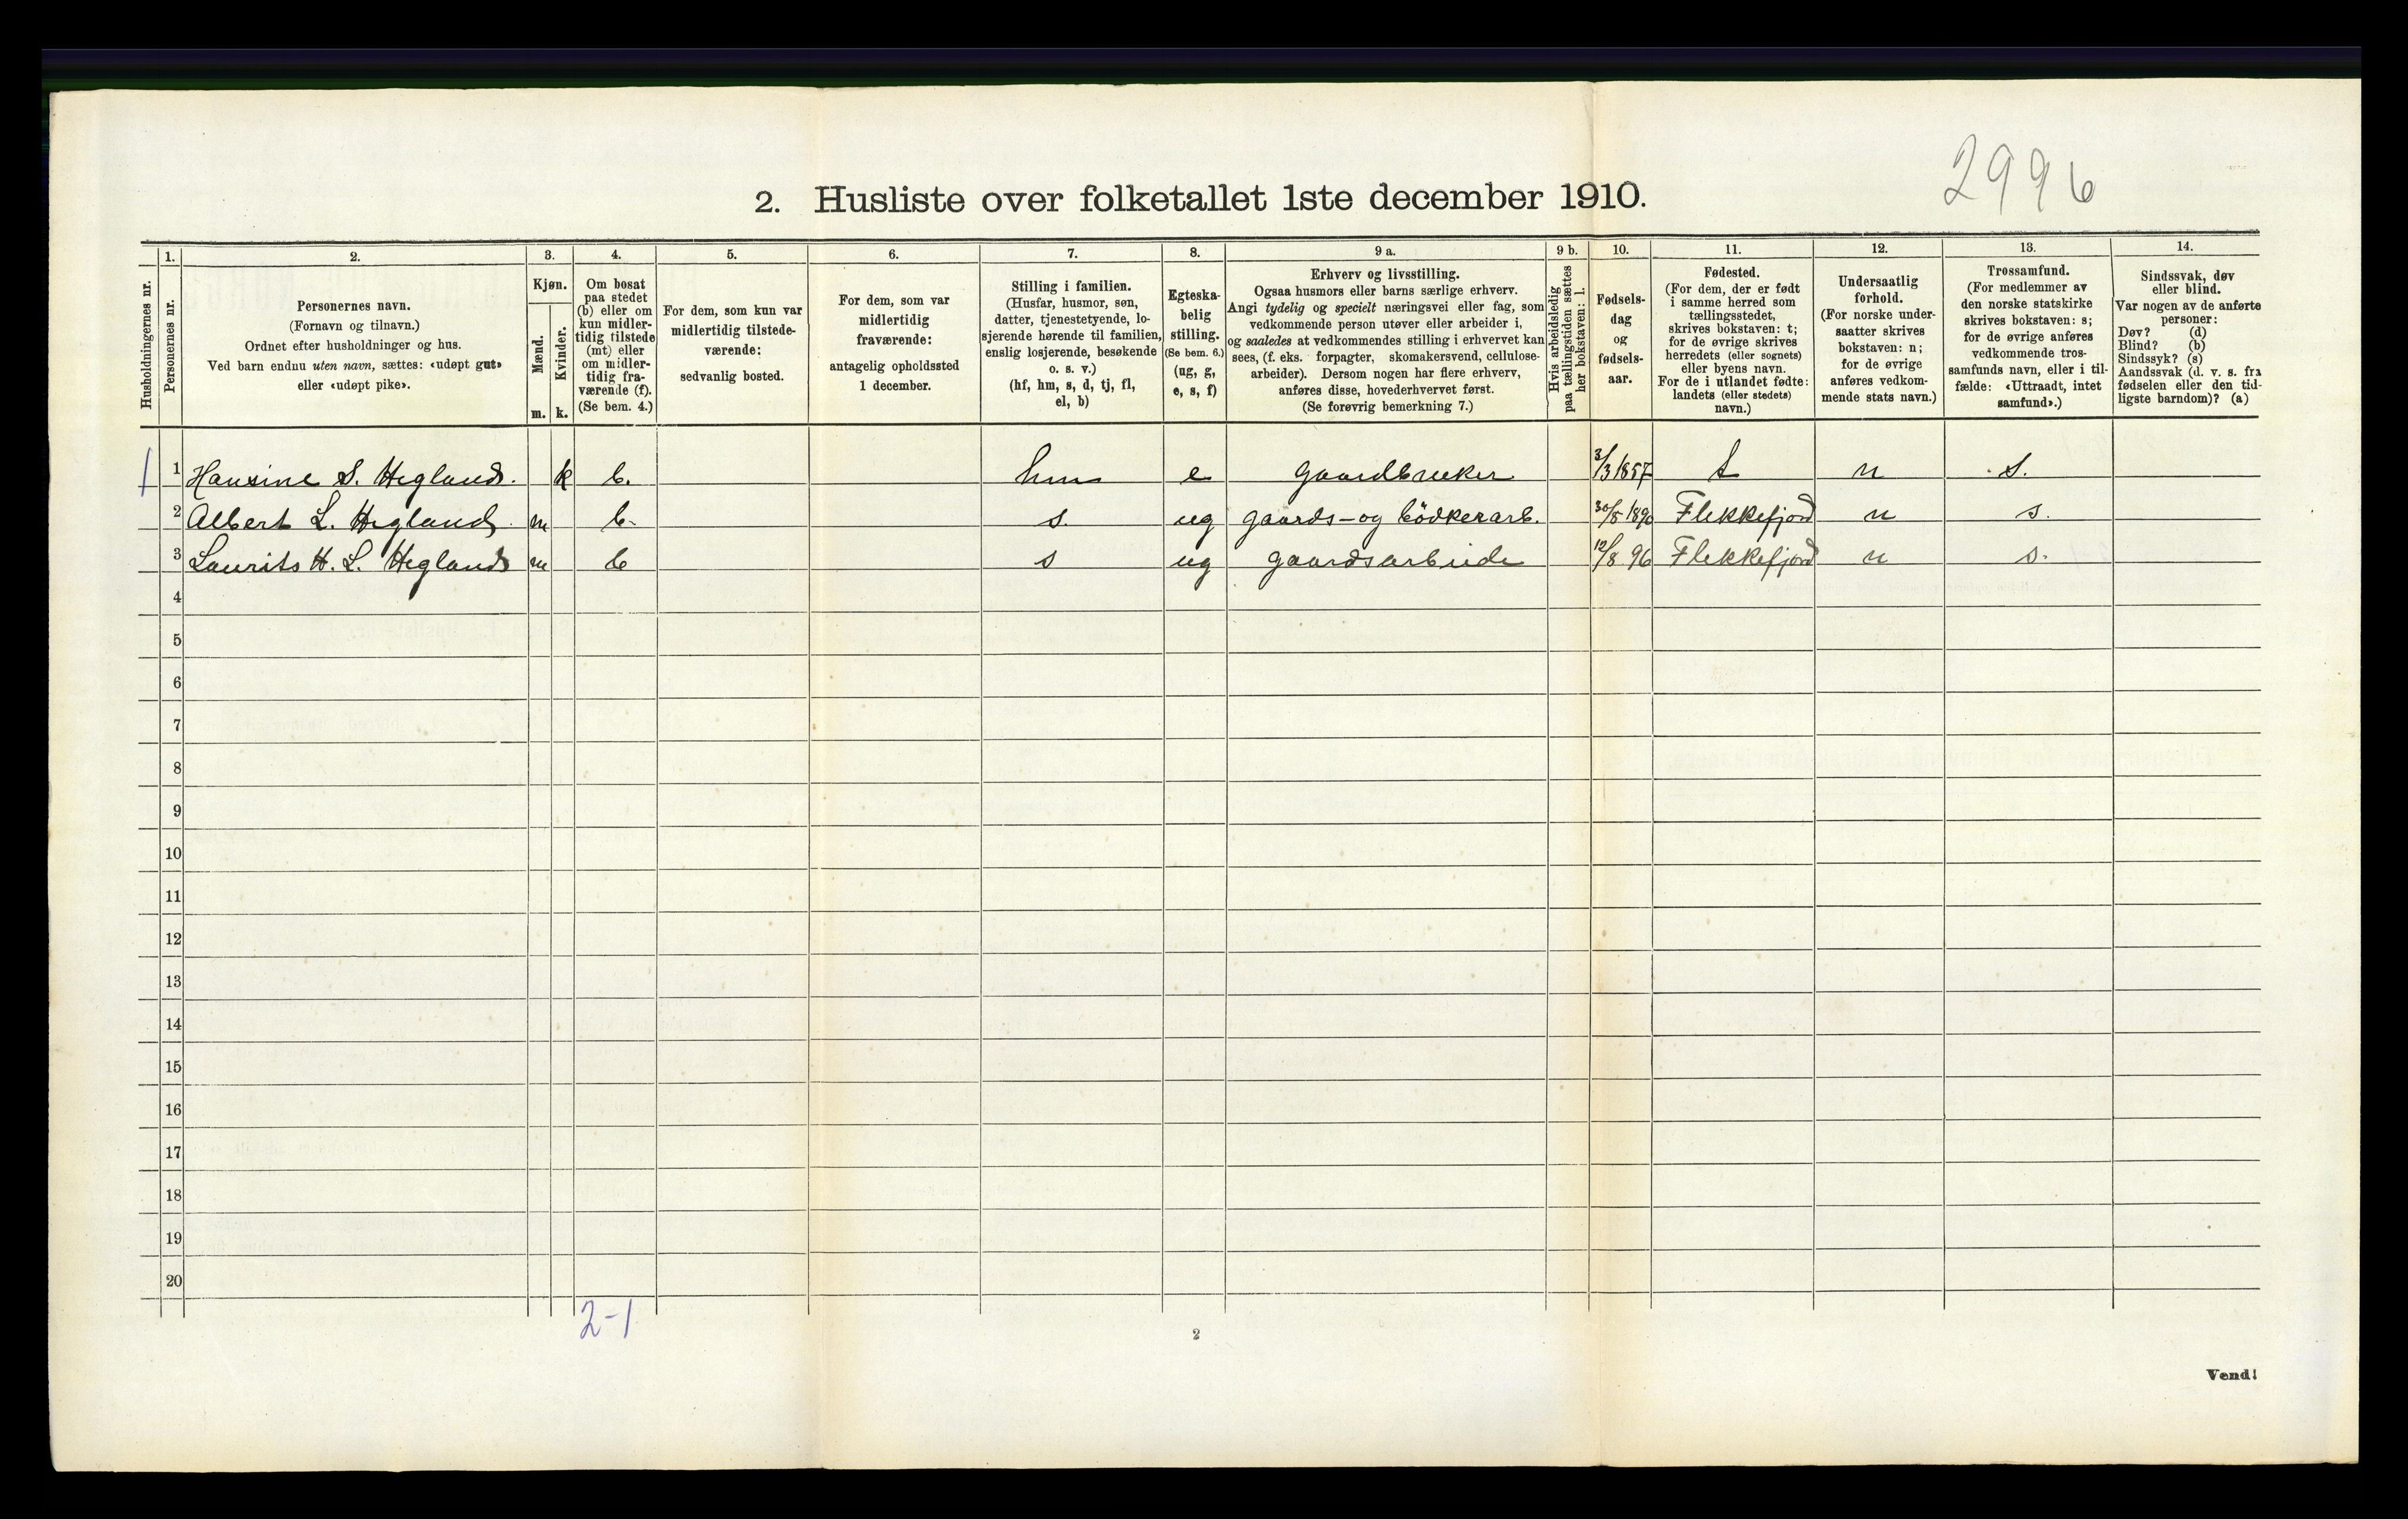 2996
2. Husliste over folketallet 1ste december 1910.
Husholdningernes nr.
1.
Personernes nr.
2.
Personernes navn.
(Fornavn og tilnavn.)
Ordnet efter husholdninger og hus.
Ved barn endnu uten navn, sættes: «udøpt gut»
eller «udøpt pike».
3.
Kjøn.
Mænd.
m.
Kvinder.
k.
4.
Om bosat
paa stedet
(b) eller om
kun midler-
tidig tilstede
(mt) eller
om midler-
tidig fra-
værende (f).
(Se bem. 4.)
5.
For dem, som kun var
midlertidig tilstede-
værende:
sedvanlig bosted.
6.
For dem, som var
midlertidig
fraværende:
antagelig opholdssted
1 december.
7.
Stilling i familien.
(Husfar, husmor, søn,
datter, tjenestetyende, lo-
sjerende hørende til familien,
enslig losjerende, besøkende
o. s. v.)
(hf, hm, s, d, tj, fl,
el, b)
8.
Egteska-
belig
stilling.
(Se bem. 6.)
(ug, g,
e, s, f)
9 a.
Erhverv og livsstilling.
Ogsaa husmors eller barns særlige erhverv.
Angi tydelig og specielt næringsvei eller fag, som
vedkommende person utøver eller arbeider i,
og saaledes at vedkommendes stilling i erhvervet kan
sees, (f. eks. forpagter, skomakersvend, cellulose-
arbeider). Dersom nogen har flere erhverv,
anføres disse, hovederhvervet først.
(Se forøvrig bemerkning 7.)
9 b.
Hvis arbeidsledig
paa tællingstiden sættes
her bokstaven: l.
10.
Fødsels-
dag
og
fødsels-
aar.
11.
Fødested.
(For dem, der er født
i samme herred som
tællingsstedet,
skrives bokstaven: t;
for de øvrige skrives
herredets (eller sognets)
eller byens navn.
For de i utlandet fødte:
landets (eller stedets)
navn.)
12.
Undersaatlig
forhold.
(For norske under-
saatter skrives
bokstaven: n;
for de øvrige
anføres vedkom-
mende stats navn.)
13.
Trossamfund.
(For medlemmer av
den norske statskirke
skrives bokstaven: s;
for de øvrige anføres
vedkommende tros-
samfunds navn, eller i til-
fælde: «Uttraadt, intet
samfund».)
14.
Sindssvak, døv
eller blind.
Var nogen av de anførte
personer:
Døv? (d)
Blind? (b)
Sindssyk? (s)
Aandssvak (d. v. s. fra
fødselen eller den tid-
ligste barndom)? (a)
1 1 Hansine S. Hegland. k b. hm e gaardbruker 3/3 1857 t n s.
2 Albert L. Hegland. m b. s. ug gaards-og bödkerarb. 30/5 1890 Flekkefjord n s.
3 Laurits H. L. Hegland m b s ug gaardsarbeide 12/8 96 Flekkefjord n s.
4
5
6
7
8
9
10
11
12
13
14
15
16
17
18
19
20
2-1
2
Vend!